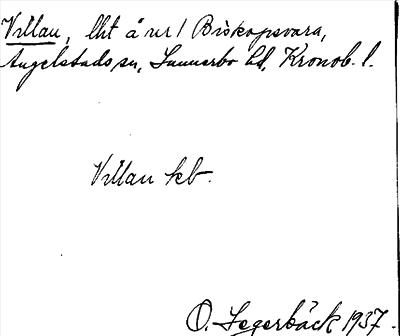 Villan, lht å nr 1 Biskopsvara,
Angelstads sn, Sunnerbo hd, Kronob. l.
Villan kb.
O. Segerbäck 1937.